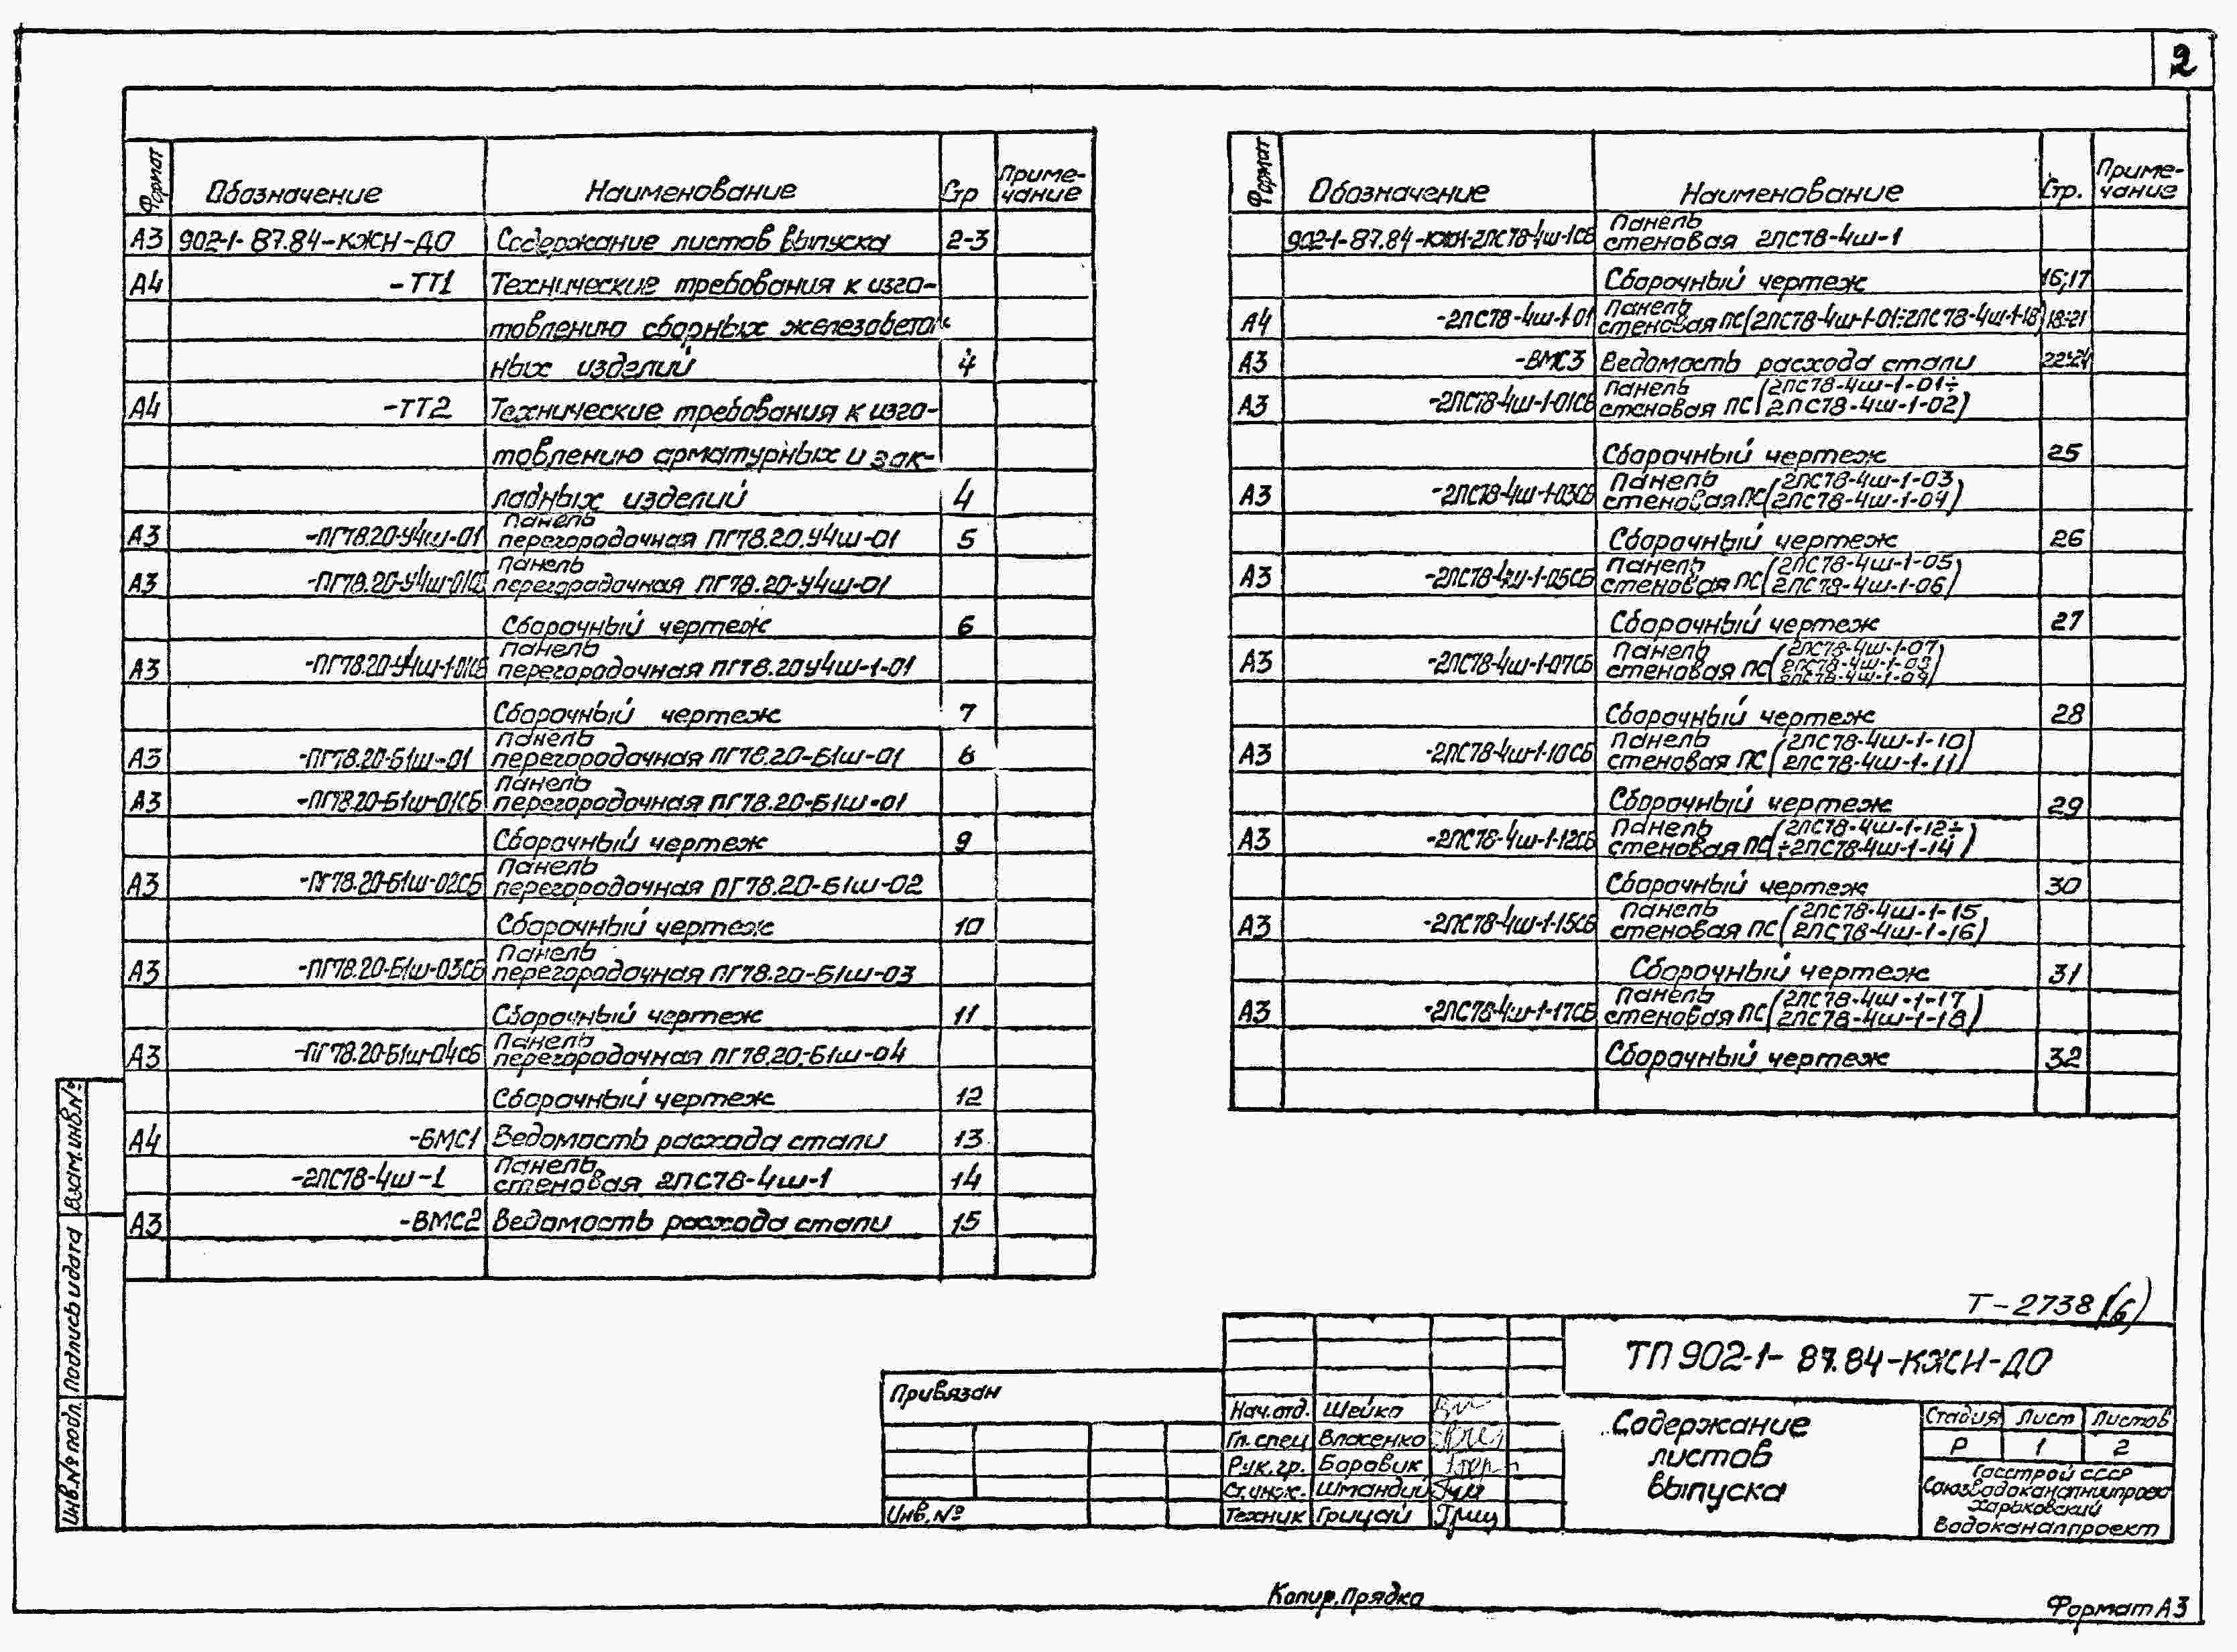 2
Формат Обозначение Наименование Стр Приме-
чание
А3 902-1-87.84-КЖН-ДО Содержание листов выпуска 2-3
А4 -ТТ1 Технические требования к изго-
товлению сборных железобетон-
ных изделий 4
А4 -ТТ2 Технические требования к изго-
товлению арматурных и зак-
ладных изделий 4
А3 -ПГ78.20-У4ш-01 Панель
перегородочная ПГ78.20.У4ш-01 5
А3 -ПГ78.20-У4ш-01СБ Панель
перегородочная ПГ78.20-У4ш-01
Сборочный чертеж 6
А3 -ПГ78.20-У4ш-1-01СБ Панель
перегородочная ПГ78.20У4ш-1-01
Сборочный чертеж 7
А3 -ПГ78.20-Б1ш-01 Панель
перегородочная ПГ78.20-Б1ш-01 8
А3 -ПГ78.20-Б1ш-01СБ Панель
перегородочная ПГ78.20-Б1ш-01
Сборочный чертеж 9
А3 -ПГ78.20-Б1ш-02СБ Панель
перегородочная ПГ78.20-Б1ш-02
Сборочный чертеж 10
А3 -ПГ78.20-Б1ш-03СБ Панель
перегородочная ПГ78.20-Б1ш-03
Сборочный чертеж 11
А3 -ПГ78.20-Б1ш-04СБ Панель
перегородочная ПГ78.20-Б1ш-04
Сборочный чертеж 12
А4 -ВМС1 Ведомость расхода стали 13
-2ПС78-4ш-1 Панель
стеновая 2ПС78-4ш-1 14
А3 -ВМС2 Ведомость расхода стали 15
Формат Обозначение Наименование Стр. Приме-
чание
902-1-87.84-КЖН-2ПС78-4ш-1СБ Панель
стеновая 2ПС78-4ш-1
Сборочный чертеж 16;17
А4 -2ПС78-4ш-1-01 Панель
стеновая ПС(2ПС78-4ш-1-01÷2ПС78-4ш-1-18) 18÷21
А3 -ВМС3 Ведомость расхода стали 22÷24
А3 -2ПС78-4ш-1-01СБ Панель (2ПС78-4ш-1-01÷
стеновая ПС 2ПС78-4ш-1-02)
Сборочный чертеж 25
А3 -2ПС78-4ш-1-03СБ Панель (2ПС78-4ш-1-03
стеновая ПС 2ПС78-4ш-1-04)
Сборочный чертеж 26
А3 -2ПС78-4ш-1-05СБ Панель (2ПС78-4ш-1-05
стеновая ПС 2ПС78-4ш-1-06)
Сборочный чертеж 27
А3 -2ПС78-4ш-1-07СБ Панель (2ПС78-4ш-1-07
стеновая ПС 2ПС78-4ш-1-08
2ПС78-4ш-1-09)
Сборочный чертеж 28
А3 -2ПС78-4ш-1-10СБ Панель (2ПС78-4ш-1-10
стеновая ПС 2ПС78-4ш-1-11)
Сборочный чертеж 29
А3 -2ПС78-4ш-1-12СБ Панель (2ПС78-4ш-1-12÷
стеновая ПС ÷2ПС78-4ш-1-14)
Сборочный чертеж 30
А3 -2ПС78-4ш-1-15СБ Панель (2ПС78-4ш-1-15
стеновая ПС 2ПС78-4ш-1-16)
Сборочный чертеж 31
А3 -2ПС78-4ш-1-17СБ Панель (2ПС78-4ш-1-17
стеновая ПС 2ПС78-4ш-1-18)
Сборочный чертеж 32
Взам.инв.№
Подпись и дата
Инв.№ подл.
Т-2738 (6)
ТП 902-1-87.84-КЖН-ДО
Привязан
Инв.№
Нач.отд. Шейко
Гл.спец Власенко
Рук.гр. Боровик
Ст.инж. Шмандий
Техник Грицай Гриц
Содержание
листов
выпуска
Стадия Лист Листов
Р 1 2
Госстрой СССР
Союзводоканалниипроект
Харьковский
Водоканалпроект
Копир.Прядка
Формат А3